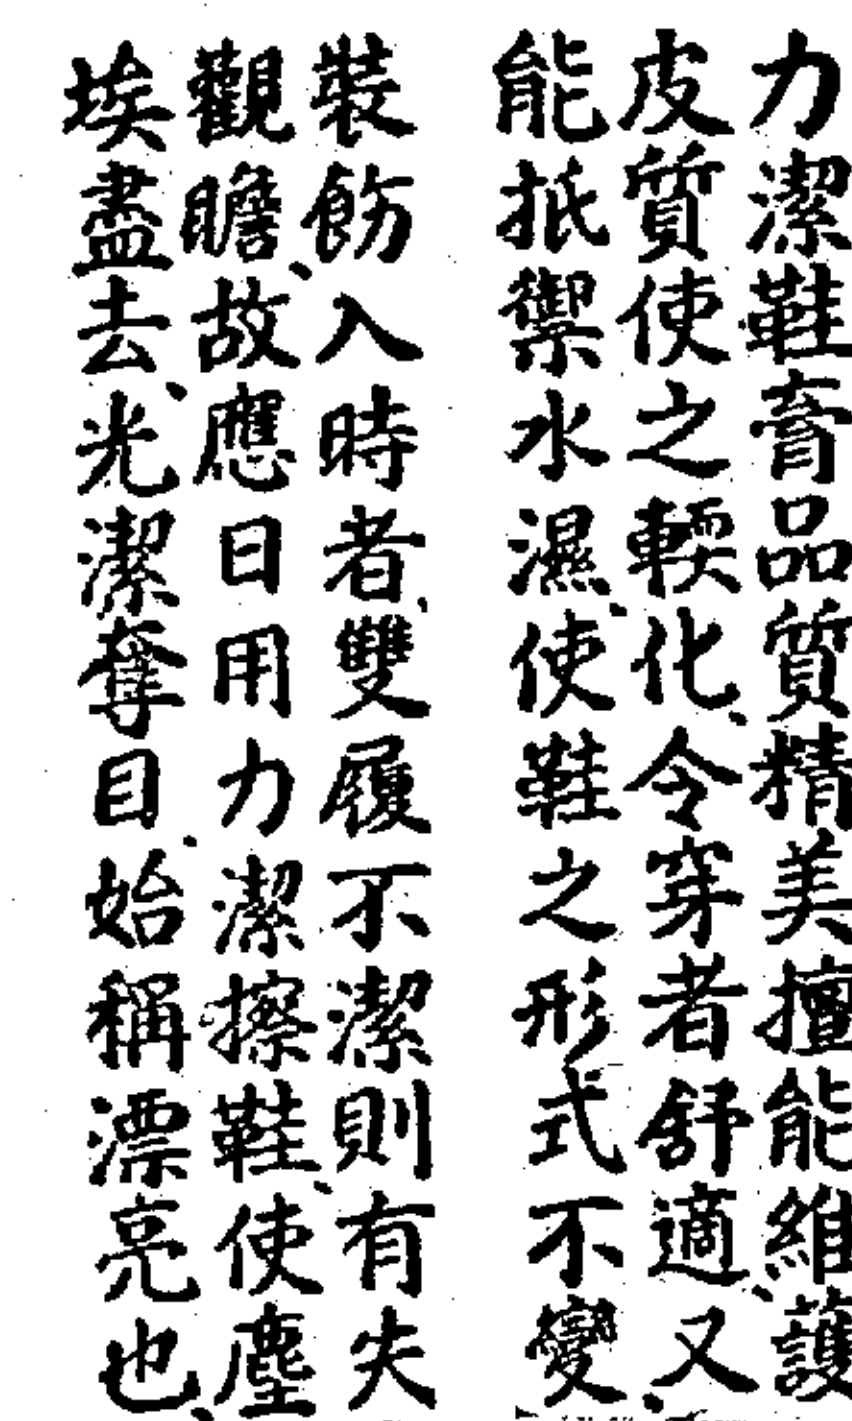 力潔鞋膏品質精美擅能維護
皮質使之輭化、令穿者舒適、又
能抵禦水濕、使鞋之形式不變
裝飭入時者、雙履不潔則有失
觀瞻、故應日用力潔擦鞋、使塵
埃盡去、光潔奪目、始稱漂亮也、